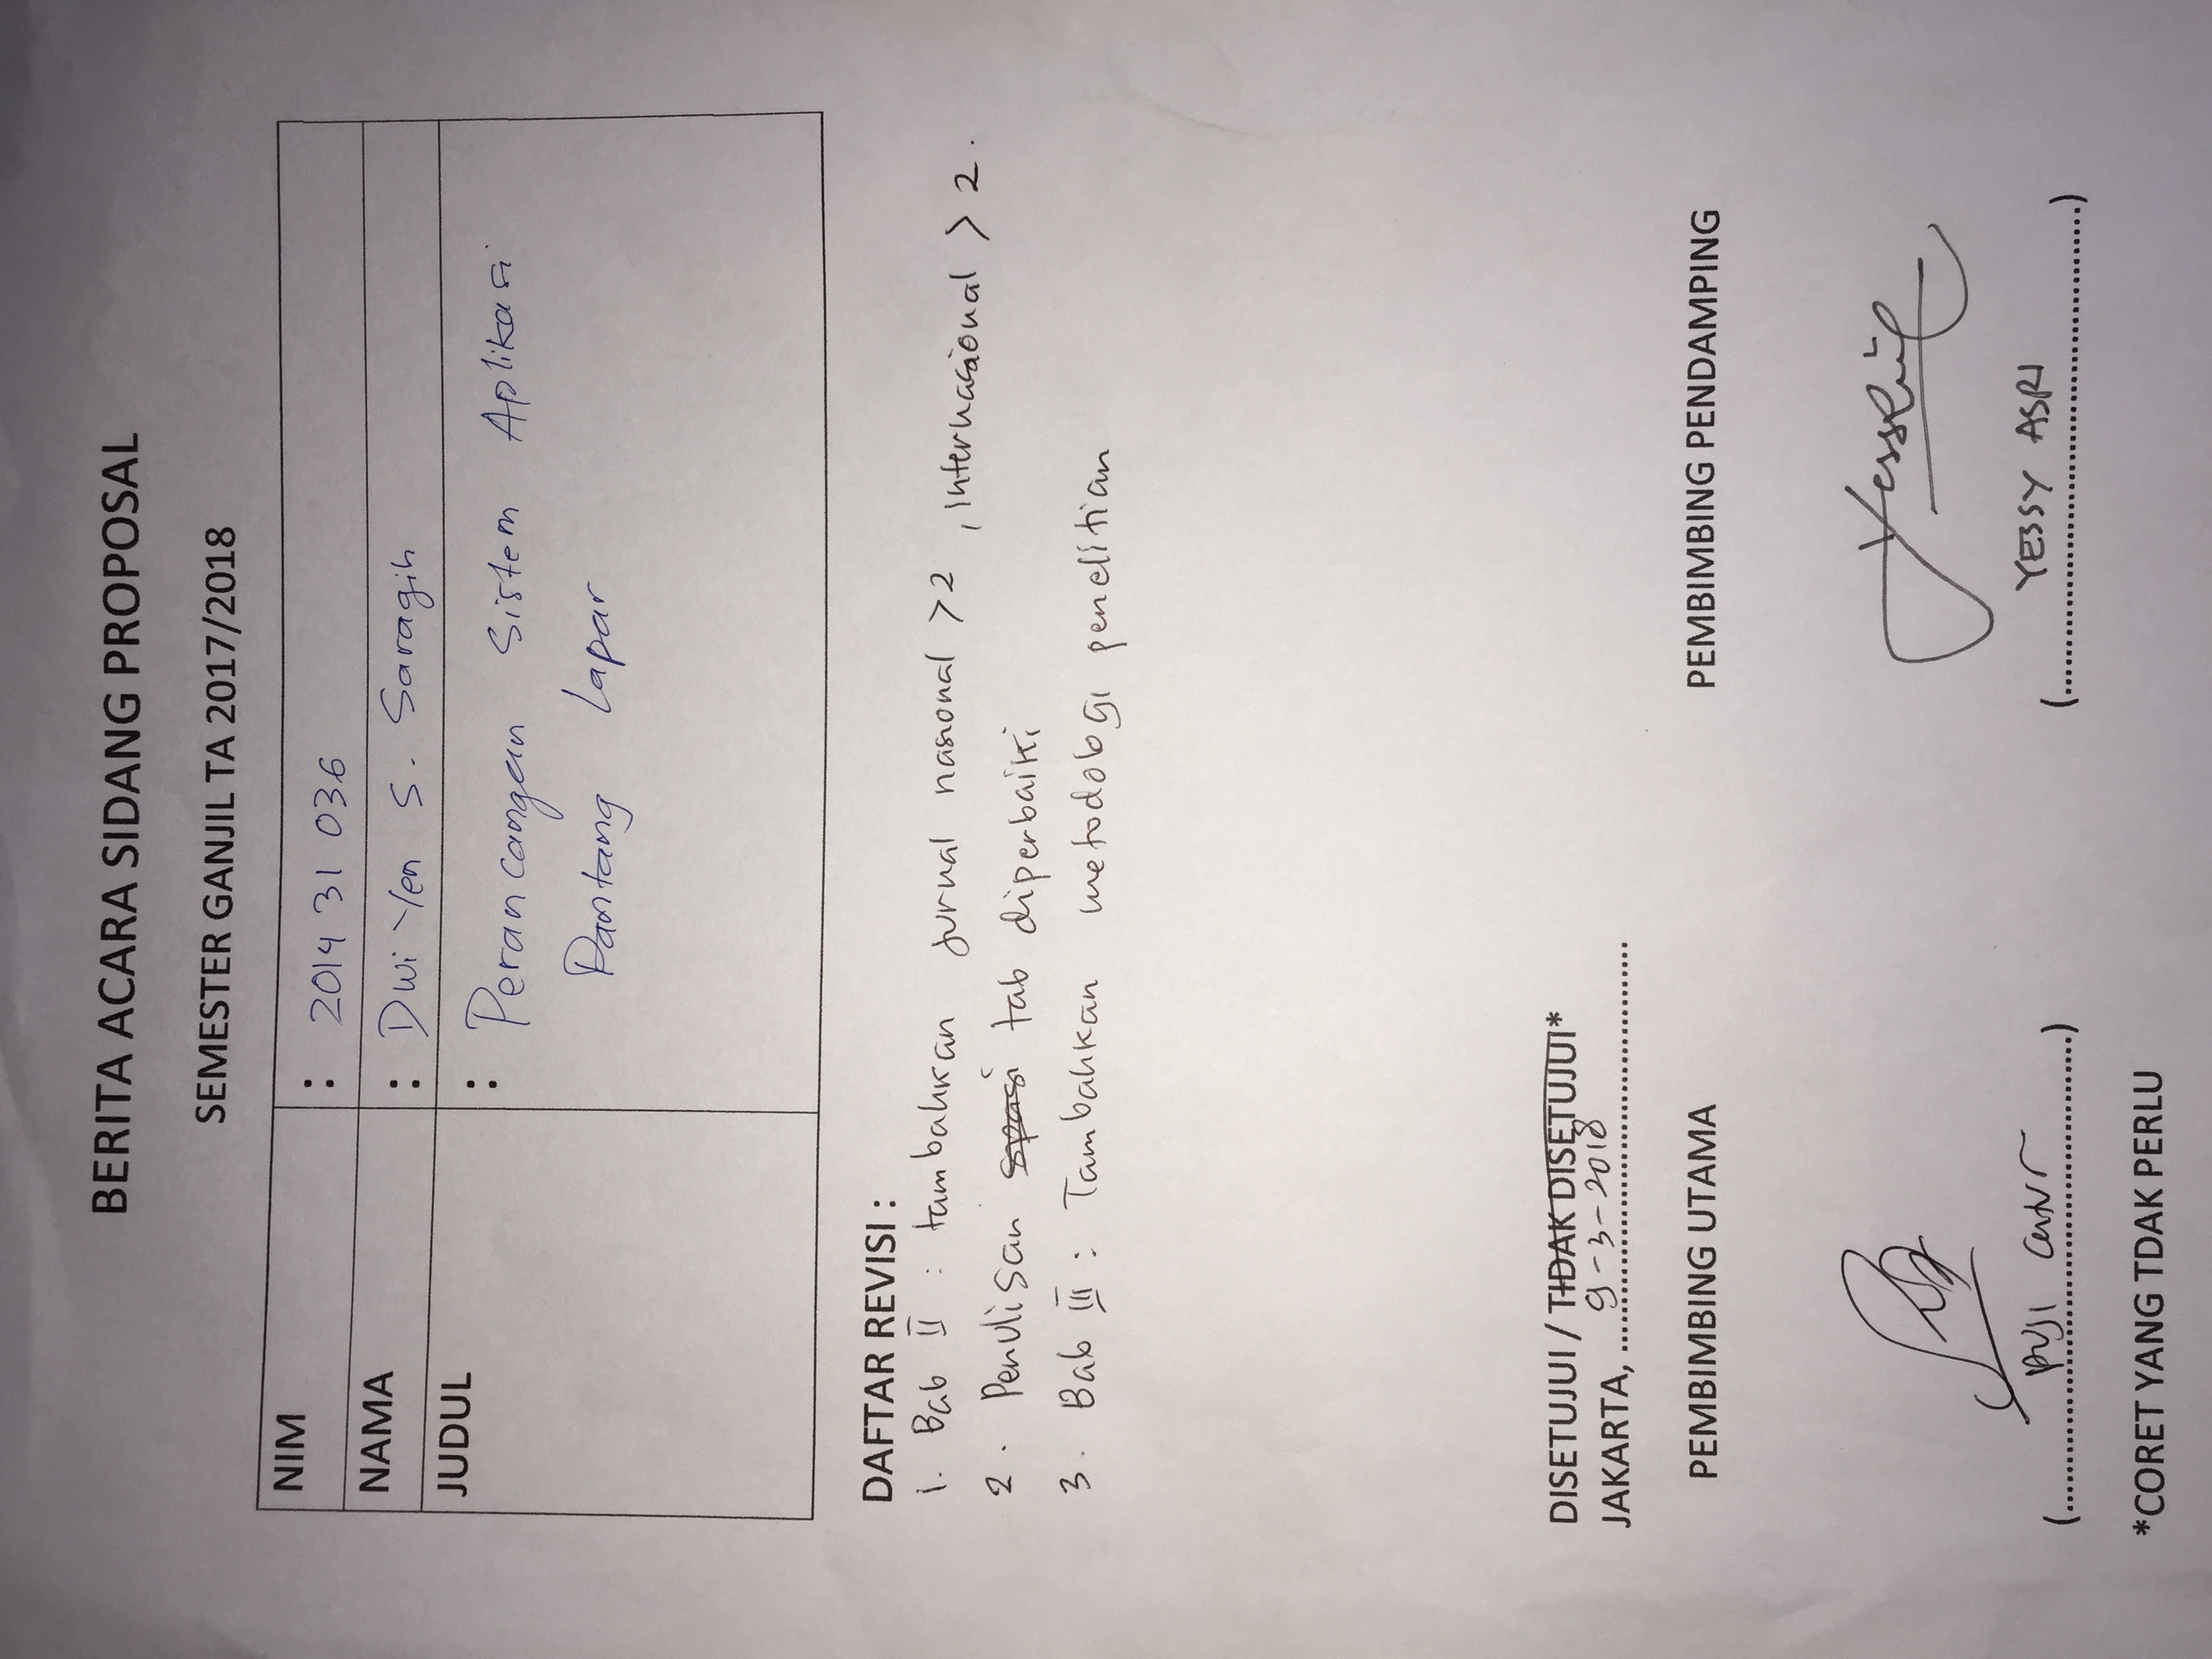 BERITA ACARA SIDANG PROPOSAL
SEMESTER GANJIL TA 2017/2018
NIM : 2014 31 036
NAMA : Dwi Yen S. Saragih
JUDUL : Perancangan Sistem Aplikasi
Pantang Lapar
DAFTAR REVISI :
1. Bab II : tambahkan jurnal nasional >2 , Internasional > 2.
2. Penulisan spasi tab diperbaiki
3. Bab III : Tambahkan metodologi penelitian
DISETUJUI / TIDAK DISETUJUI*
JAKARTA, 9-3-2018
PEMBIMBING UTAMA PEMBIMBING PENDAMPING
(puji) (YESSY ASRI)
*CORET YANG TDAK PERLU